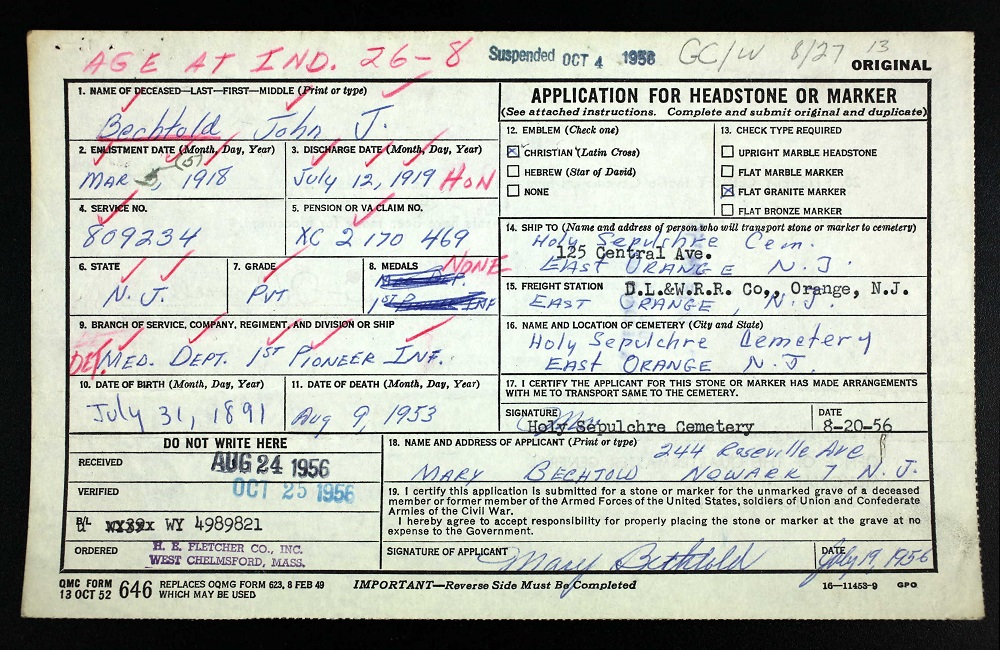 AGE AT IND. 26-8
Suspended OCT 4 1956
GC/W 8/27 13
ORIGINAL
1. NAME OF DECEASED—LAST—FIRST—MIDDLE (Print or type)
Bechtold John J.
2. ENLISTMENT DATE (Month, Day, Year)
MAR 5, 1918
(5)
3. DISCHARGE DATE (Month, Day, Year)
July 12, 1919 HON
4. SERVICE NO.
809234
5. PENSION OR VA CLAIM NO.
XC 2 170 469
6. STATE
N. J.
7. GRADE
Pvt
8. MEDALS
NONE
9. BRANCH OF SERVICE, COMPANY, REGIMENT, AND DIVISION OR SHIP
DET. MED. DEPT. 1ST PIONEER INF.
10. DATE OF BIRTH (Month, Day, Year)
July 31, 1891
11. DATE OF DEATH (Month, Day, Year)
Aug 9, 1953
APPLICATION FOR HEADSTONE OR MARKER
(See attached instructions. Complete and submit original and duplicate)
12. EMBLEM (Check one)
CHRISTIAN (Latin Cross)
HEBREW (Star of David)
NONE
13. CHECK TYPE REQUIRED
UPRIGHT MARBLE HEADSTONE
FLAT MARBLE MARKER
FLAT GRANITE MARKER
FLAT BRONZE MARKER
14. SHIP TO (Name and address of person who will transport stone or marker to cemetery)
Holy Sepulchre Cem.
125 Central Ave.
EAST ORANGE N. J.
15. FREIGHT STATION
D.L.&W.R.R. Co,, Orange, N.J.
EAST ORANGE, N. J.
16. NAME AND LOCATION OF CEMETERY (City and State)
Holy Sepulchre Cemetery
EAST ORANGE N. J.
17. I CERTIFY THE APPLICANT FOR THIS STONE OR MARKER HAS MADE ARRANGEMENTS
WITH ME TO TRANSPORT SAME TO THE CEMETERY.
SIGNATURE
Holy Sepulchre Cemetery
DATE
8-20-56
DO NOT WRITE HERE
RECEIVED
AUG 24 1956
VERIFIED
OCT 25 1956
B/L
WY 4989821
ORDERED
H. E. FLETCHER CO., INC.
WEST CHELMSFORD, MASS.
18. NAME AND ADDRESS OF APPLICANT (Print or type)
244 Roseville Ave
MARY BECHTOLD NEWARK 7 N. J.
19. I certify this application is submitted for a stone or marker for the unmarked grave of a deceased
member or former member of the Armed Forces of the United States, soldiers of Union and Confederate
Armies of the Civil War.
I hereby agree to accept responsibility for properly placing the stone or marker at the grave at no
expense to the Government.
SIGNATURE OF APPLICANT
Mary Bechtold
DATE
July 19, 1956
QMC FORM
13 OCT 52
646
REPLACES OQMG FORM 623, 8 FEB 49
WHICH MAY BE USED
IMPORTANT—Reverse Side Must Be Completed
16—11453-9 GPO